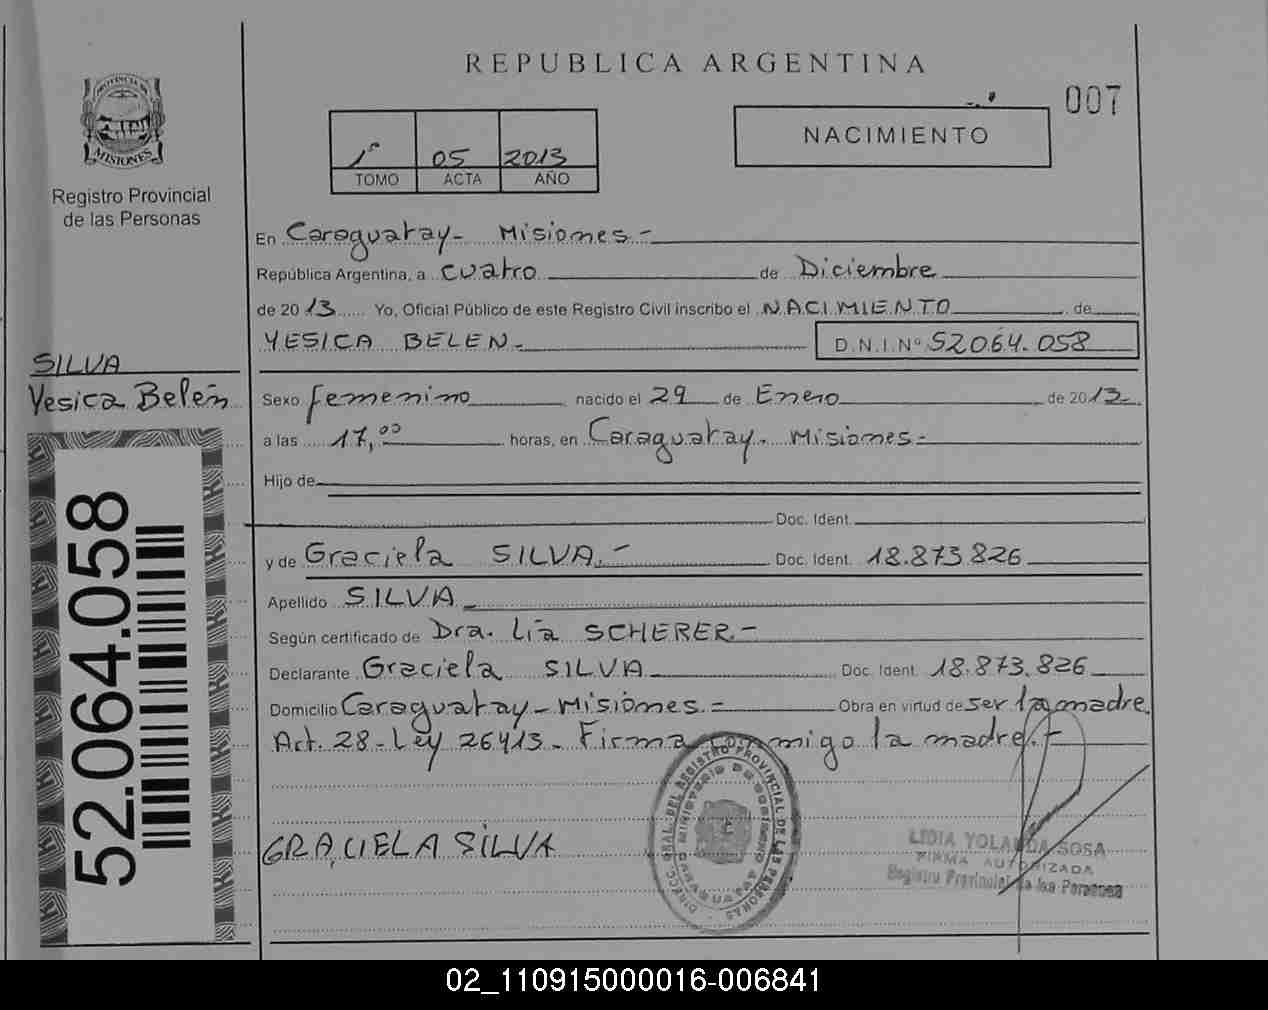 REPUBLICA ARGENTINA
007
PROVINCIA DE
MISIONES
Registro Provincial
de las Personas
1º 05 2013
TOMO ACTA AÑO
NACIMIENTO
En Caraguatay - Misiones -
República Argentina, a cuatro de Diciembre
de 2013 Yo, Oficial Público de este Registro Civil inscribo el NACIMIENTO de
YESICA BELEN - D.N.I.Nº 52.064.058
SILVA
Yesica Belén
Sexo femenino nacido el 29 de Enero de 2013
a las 17,00 horas, en Caraguatay - Misiones -
Hijo de
Doc. Ident.
y de Graciela SILVA.- Doc. Ident. 18.873.826
Apellido SILVA
Según certificado de Dra. Lía SCHERER -
Declarante Graciela SILVA Doc. Ident. 18.873.826
Domicilio Caraguatay - Misiones.- Obra en virtud de ser la madre
Art. 28 - Ley 26413 - Firma conmigo la madre.-
52.064.058
GRACIELA SILVA
DIRECC. GRAL. DEL REGISTRO PROVINCIAL DE LAS PERSONAS
MINISTERIO DE GOBIERNO
LIDIA YOLANDA SOSA
FIRMA AUTORIZADA
Registro Provincial de las Personas
02_110915000016-006841